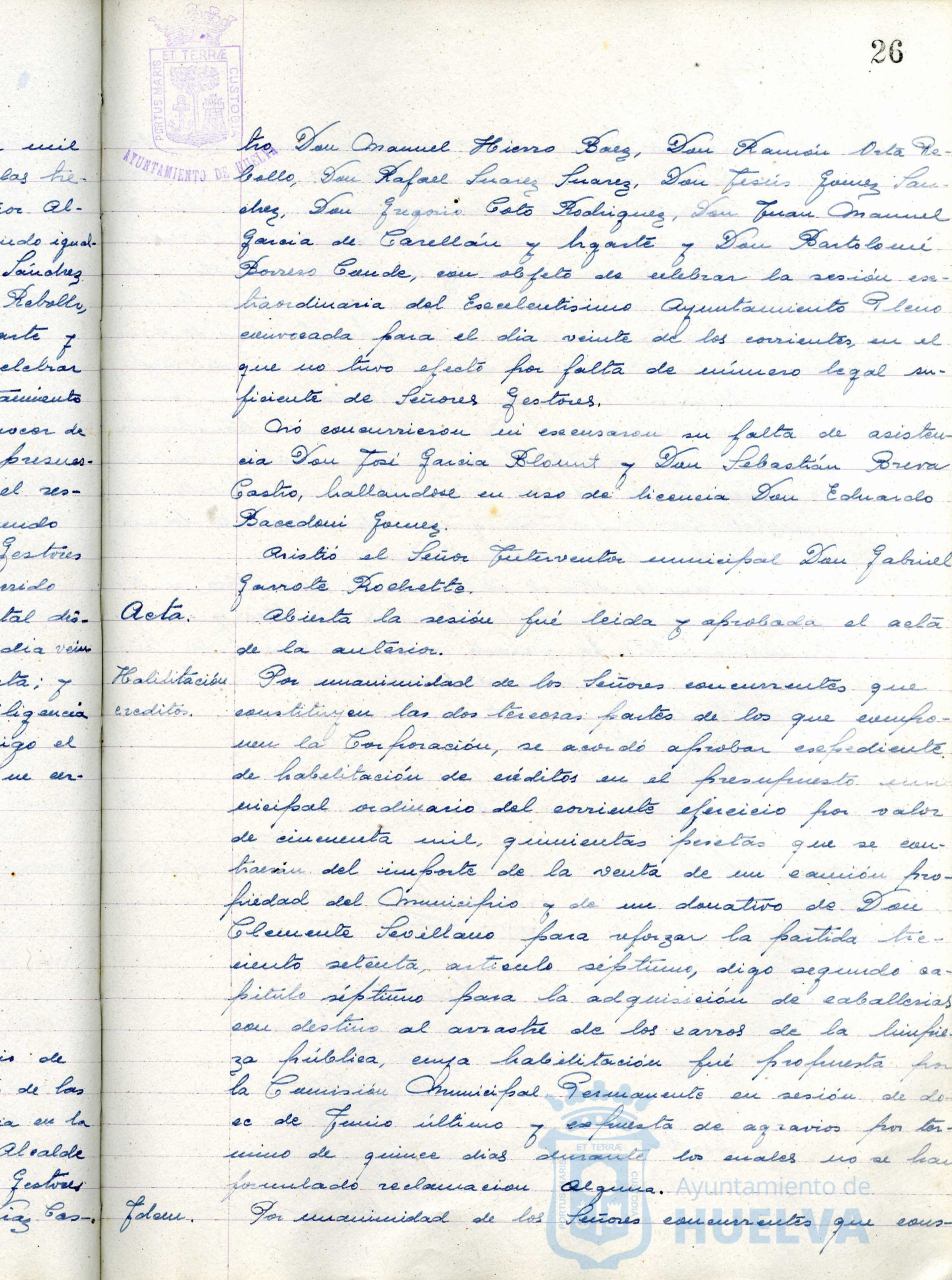 26
ET TERRÆ
PORTUS MARIS
CUSTODIA
AYUNTAMIENTO DE HUELVA
mil
las tre-
Al-
igual-
Sánchez
Rebollo,
y
celebrar
de
presu-
el
Gestores
dis-
dia vein
y
el
de
de las
en la
Alcalde
Gestores
Cas-
tro, Don Manuel Hierro Baez, Don Ramón Orta Re-
bollo, Don Rafael Suarez Suarez, Don Jesús Gomez San-
chez, Don Gregorio Coto Rodriguez, Don Juan Manuel
Garcia de Carellán y Ugarte y Don Bartolomé
Borrero Conde, con objeto de celebrar la sesión es-
traordinaria del Escelentisimo Ayuntamiento Pleno
convocada para el dia veinte de los corrientes, en el
que no tuvo efecto por falta de número legal su-
ficiente de Señores Gestores.
No concurrieron ni escusaron su falta de asisten-
cia Don José Garcia Blount y Don Sebastián Breva
Castro, hallandose en uso de licencia Don Eduardo
Bacedoni Gomez.
Asistió el Señor Interventor municipal Don Gabriel
Garrote Rochette.
Acta. Abierta la sesión fué leida y aprobada el acta
de la anterior.
Habilitación Por unanimidad de los Señores concurrentes que
creditos. constituyen las dos terceras partes de los que compo-
nen la Corporación, se acordó aprobar espediente
de habilitación de créditos en el presupuesto mu
nicipal ordinario del corriente ejercicio por valor
de cincuenta mil, quinientas pesetas que se con-
traerán del importe de la venta de un camión pro-
piedad del Municipio y de un donativo de Don
Clemente Sevillano para reforzar la partida tre-
ciento setenta, articulo séptimo, digo segundo ca-
pitulo séptimo para la adquisición de caballerias
con destino al arrastre de los carros de la limpie-
za pública, cuya habilitación fué propuesta por
la Comisión Municipal Permanente en sesión de do-
ce de Junio último y espuesta de agravios por ter-
mino de quince dias durante los cuales no se han
formulado reclamacion alguna.
Idem. Por unanimidad de los Señores concurrentes que cons-
ET TERRÆ
PORTUS MARIS
CUSTODIA
Ayuntamiento de
HUELVA